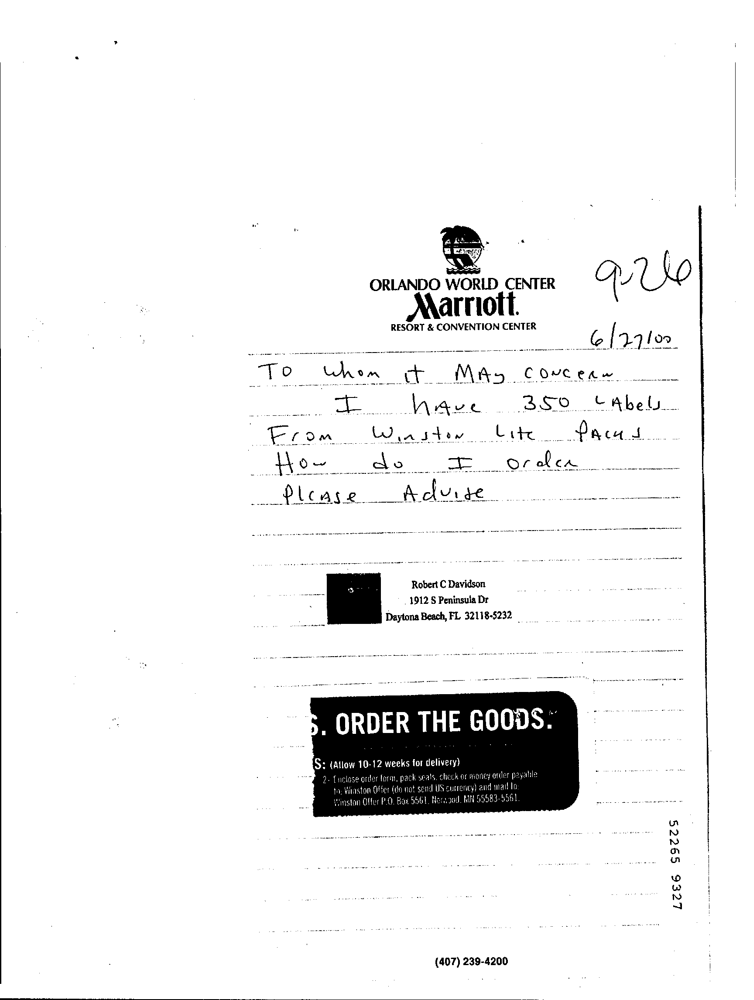 ORLANDO WORLD CENTER
Marriott.
RESORT & CONVENTION CENTER
9-26
6/27/00
To whom it MAy concern
I hAve 350 LAbels
From Winston Lite PAcks
How do I order
PleAse Advise
Robert C Davidson
1912 S Peninsula Dr
Daytona Beach, FL 32118-5232
S. ORDER THE GOODS.
S: (Allow 10-12 weeks for delivery)
2- Enclose order form, pack seals, check or money order payable
to: Winston Offer (do not send US currency) and mail to:
Winston Offer P.O. Box 5561, Norwood, MN 55583-5561.
52265 9327
(407) 239-4200